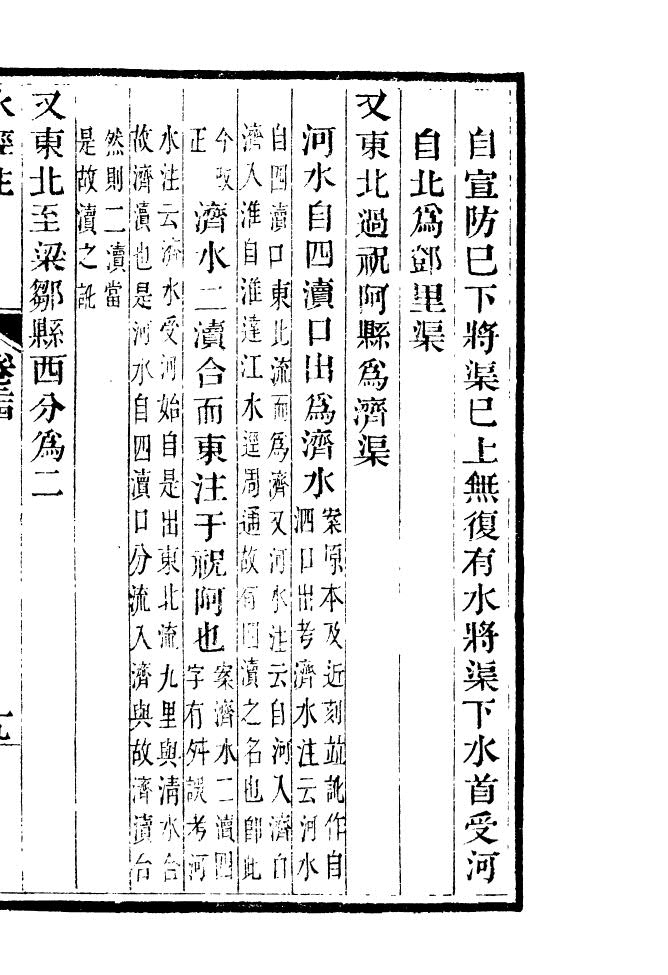 自宣防已下將渠已上無復有水將渠下水首受河
自北爲鄧里渠
又東北過祝阿縣爲濟渠
河水自四瀆口出爲濟水
案原本及近刻並訛作自
泗口出考濟水注云河水
自四瀆口東北流而爲濟又河水注云自河入濟自
濟入淮自淮達江水逕周通故有四瀆之名也卽此
今改
正
濟水二瀆合而東注于祝阿也
案濟水二瀆四
字有舛誤考河
水注云濟水受河始自是出東北流九里與清水合
故濟瀆也是河水自四瀆口分流入濟與故濟瀆合
然則二瀆當
是故瀆之訛
又東北至梁鄒縣西分爲二
水經注
九